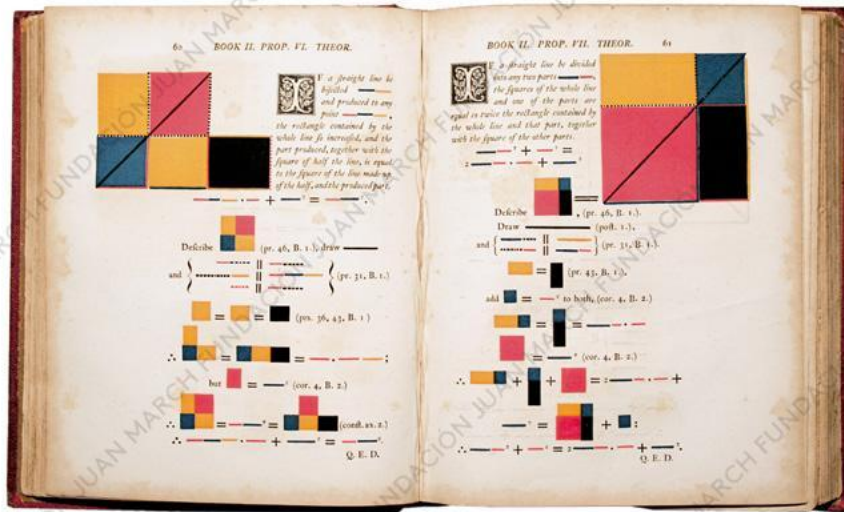 60 BOOK II. PROP. VI. THEOR.
IF a ſtraight line be
biſected
and produced to any
point ,
the rectangle contained by the
whole line ſo increaſed, and the
part produced, together with the
ſquare of half the line, is equal
to the ſquare of the line made up
of the half, and the produced part.
· + ² = ².
Deſcribe (pr. 46, B. 1.), draw
and { || || || } (pr. 31, B. 1.)
= = (prs. 36, 43, B. 1)
∴ = = · ;
but = ² (cor. 4, B. 2.)
∴ = ² = (conſt. ax. 2.)
∴ · + ² = ².
Q. E. D.
BOOK II. PROP. VII. THEOR. 61
IF a ſtraight line be divided
into any two parts ,
the ſquares of the whole line
and one of the parts are
equal to twice the rectangle contained by
the whole line and that part, together
with the ſquare of the other parts.
² + ² =
2 · + ²
Deſcribe , (pr. 46, B. 1.).
Draw (poſt. 1.),
and { || || } (pr. 31, B. 1.).
= (pr. 43, B. 1.),
add = ² to both, (cor. 4, B. 2.)
= = ·
= ² (cor. 4, B. 2.)
∴ + + = 2 · +
² = + ;
∴ ² + ² = 2 · + ².
Q. E. D.
FUNDACIÓN JUAN MARCH